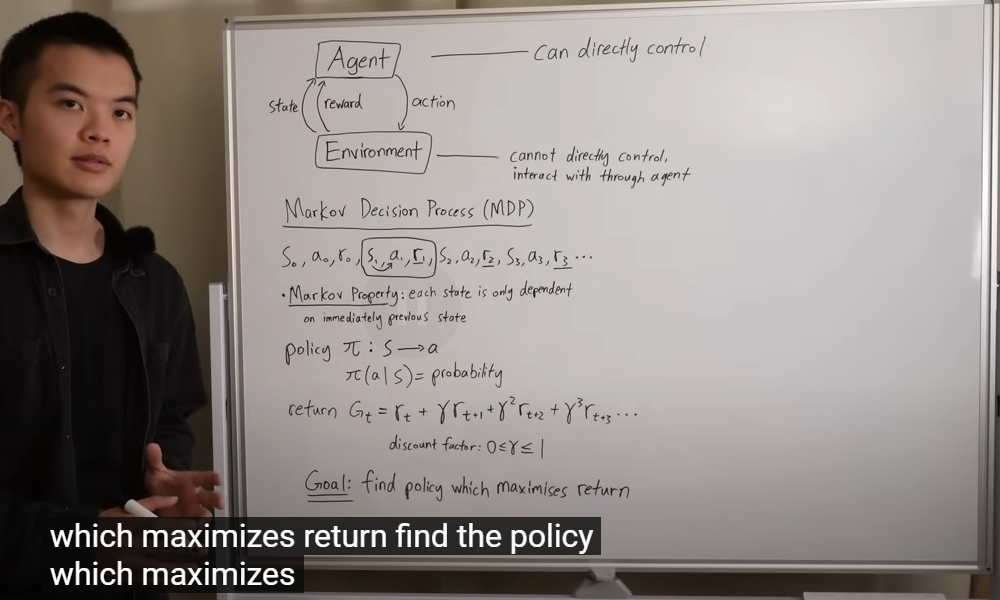 Agent
Can directly control
state
reward
action
Environment
cannot directly control,
interact with through agent
Markov Decision Process (MDP)
S₀, a₀, r₀, S₁, a₁, r₁, S₂, a₂, r₂, S₃, a₃, r₃ ...
• Markov Property: each state is only dependent
on immediately previous state
policy π : S → a
π(a|s) = probability
return Gₜ = rₜ + γrₜ₊₁ + γ²rₜ₊₂ + γ³rₜ₊₃ ...
discount factor: 0 ≤ γ ≤ 1
Goal: find policy which maximises return
which maximizes return find the policy
which maximizes